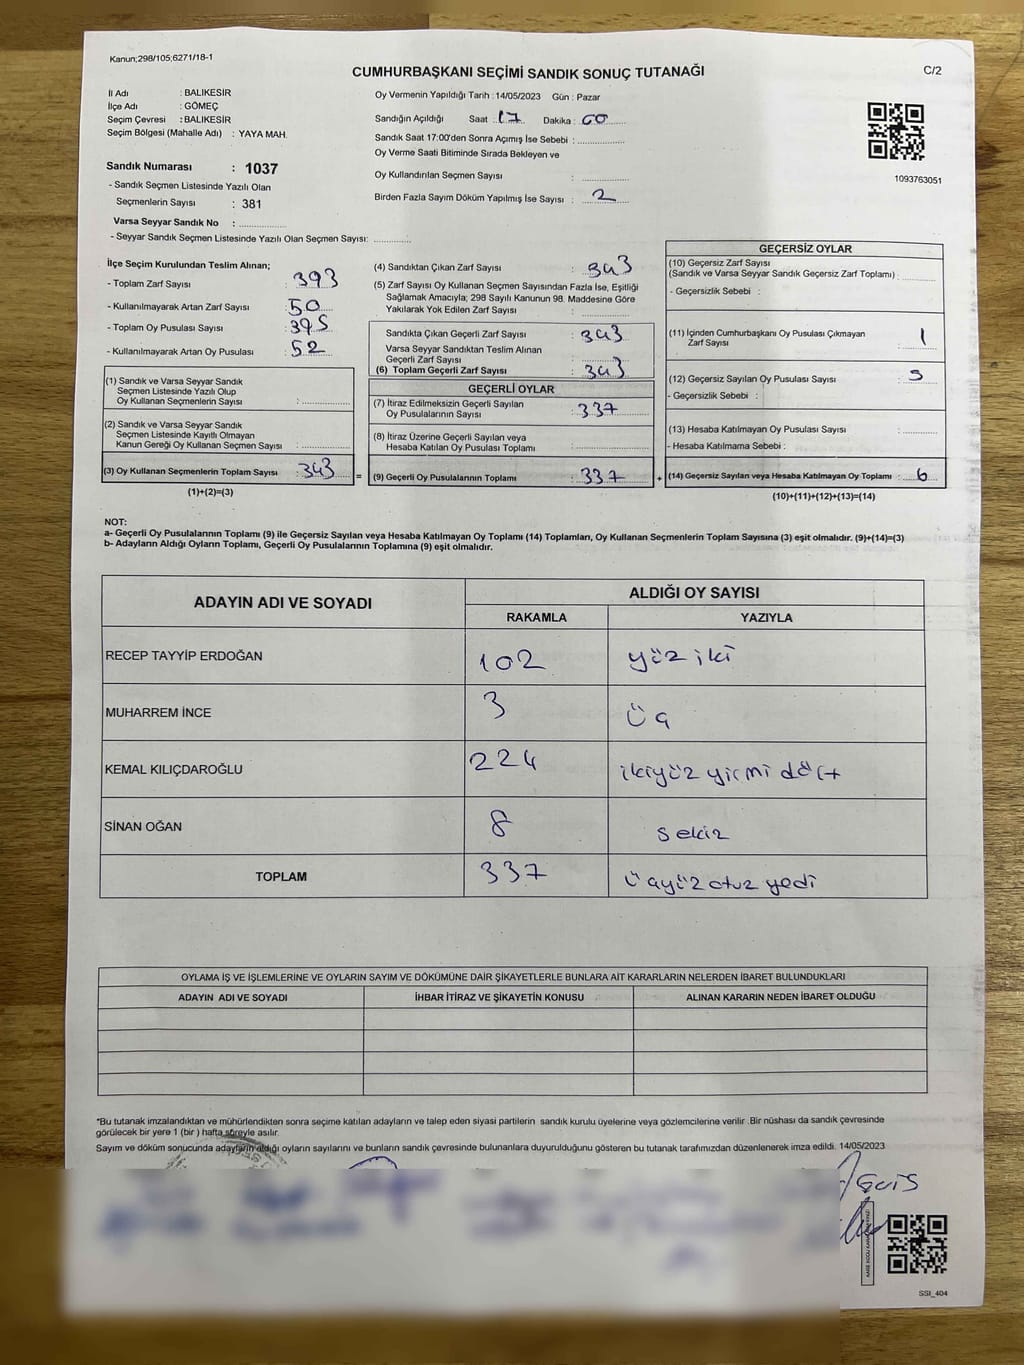 Kanun;298/105;6271/18-1
CUMHURBAŞKANI SEÇİMİ SANDIK SONUÇ TUTANAĞI
C/2
İl Adı : BALIKESİR
İlçe Adı : GÖMEÇ
Seçim Çevresi : BALIKESİR
Seçim Bölgesi (Mahalle Adı) : YAYA MAH.
Sandık Numarası : 1037
- Sandık Seçmen Listesinde Yazılı Olan
Seçmenlerin Sayısı : 381
Varsa Seyyar Sandık No :
- Seyyar Sandık Seçmen Listesinde Yazılı Olan Seçmen Sayısı:
Oy Vermenin Yapıldığı Tarih : 14/05/2023 Gün : Pazar
Sandığın Açıldığı Saat : 17 Dakika : 00
Sandık Saat 17:00'den Sonra Açımış İse Sebebi :
Oy Verme Saati Bitiminde Sırada Bekleyen ve
Oy Kullandırılan Seçmen Sayısı :
Birden Fazla Sayım Döküm Yapılmış İse Sayısı : 2
1093763051
İlçe Seçim Kurulundan Teslim Alınan;
- Toplam Zarf Sayısı : 393
- Kullanılmayarak Artan Zarf Sayısı : 50
- Toplam Oy Pusulası Sayısı : 395
- Kullanılmayarak Artan Oy Pusulası : 52
(1) Sandık ve Varsa Seyyar Sandık
Seçmen Listesinde Yazılı Olup
Oy Kullanan Seçmenlerin Sayısı :
(2) Sandık ve Varsa Seyyar Sandık
Seçmen Listesinde Kayıtlı Olmayan
Kanun Gereği Oy Kullanan Seçmen Sayısı :
(3) Oy Kullanan Seçmenlerin Toplam Sayısı : 343 =
(1)+(2)=(3)
(4) Sandıktan Çıkan Zarf Sayısı : 343
(5) Zarf Sayısı Oy Kullanan Seçmen Sayısından Fazla İse, Eşitliği
Sağlamak Amacıyla; 298 Sayılı Kanunun 98. Maddesine Göre
Yakılarak Yok Edilen Zarf Sayısı :
Sandıkta Çıkan Geçerli Zarf Sayısı : 343
Varsa Seyyar Sandıktan Teslim Alınan
Geçerli Zarf Sayısı :
(6) Toplam Geçerli Zarf Sayısı : 343
GEÇERLİ OYLAR
(7) İtiraz Edilmeksizin Geçerli Sayılan
Oy Pusulalarının Sayısı : 337
(8) İtiraz Üzerine Geçerli Sayılan veya
Hesaba Katılan Oy Pusulası Toplamı :
(9) Geçerli Oy Pusulalarının Toplamı : 337 +
GEÇERSİZ OYLAR
(10) Geçersiz Zarf Sayısı
(Sandık ve Varsa Seyyar Sandık Geçersiz Zarf Toplamı) :
- Geçersizlik Sebebi :
(11) İçinden Cumhurbaşkanı Oy Pusulası Çıkmayan
Zarf Sayısı : 1
(12) Geçersiz Sayılan Oy Pusulası Sayısı : 5
- Geçersizlik Sebebi :
(13) Hesaba Katılmayan Oy Pusulası Sayısı :
- Hesaba Katılmama Sebebi :
(14) Geçersiz Sayılan veya Hesaba Katılmayan Oy Toplamı : 6
(10)+(11)+(12)+(13)=(14)
NOT:
a- Geçerli Oy Pusulalarının Toplamı (9) ile Geçersiz Sayılan veya Hesaba Katılmayan Oy Toplamı (14) Toplamları, Oy Kullanan Seçmenlerin Toplam Sayısına (3) eşit olmalıdır. (9)+(14)=(3)
b- Adayların Aldığı Oyların Toplamı, Geçerli Oy Pusulalarının Toplamına (9) eşit olmalıdır.
ADAYIN ADI VE SOYADI
ALDIĞI OY SAYISI
RAKAMLA YAZIYLA
RECEP TAYYİP ERDOĞAN 102 yüz iki
MUHARREM İNCE 3 üç
KEMAL KILIÇDAROĞLU 224 ikiyüz yirmi dört
SİNAN OĞAN 8 sekiz
TOPLAM 337 üçyüz otuz yedi
OYLAMA İŞ VE İŞLEMLERİNE VE OYLARIN SAYIM VE DÖKÜMÜNE DAİR ŞİKAYETLERLE BUNLARA AİT KARARLARIN NELERDEN İBARET BULUNDUKLARI
ADAYIN ADI VE SOYADI İHBAR İTİRAZ VE ŞİKAYETİN KONUSU ALINAN KARARIN NEDEN İBARET OLDUĞU
*Bu tutanak imzalandıktan ve mühürlendikten sonra seçime katılan adayların ve talep eden siyasi partilerin sandık kurulu üyelerine veya gözlemcilerine verilir. Bir nüshası da sandık çevresinde
görülecek bir yere 1 (bir) hafta süreyle asılır.
Sayım ve döküm sonucunda adayların aldığı oyların sayılarını ve bunların sandık çevresinde bulunanlara duyurulduğunu gösteren bu tutanak tarafımızdan düzenlenerek imza edildi. 14/05/2023
SSI_404